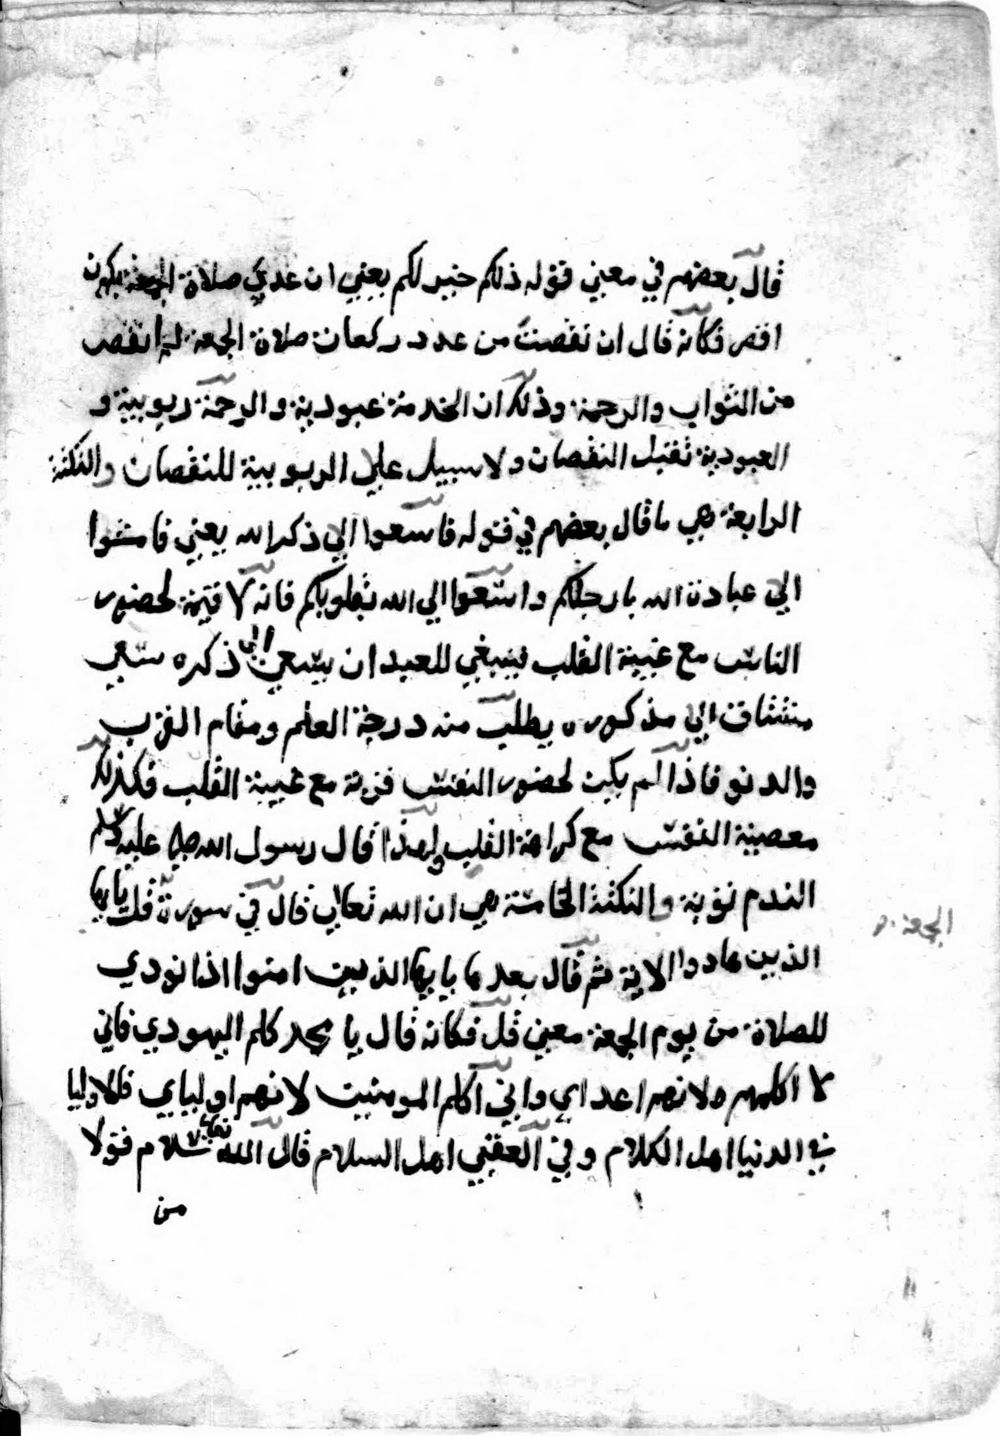 قال بعضهم في معني قوله ذلكم خير لكم يعني ان عدد صلاة الجمعة يكون
اقصر فكانه قال ان نقصت من عدد ركعات صلاة الجمعة لم انقص
من الثواب والرحمة وذلك ان الخدمة عبودية والرحمة ربوبية و
العبودية تقبل النقصان ولا سبيل علي الربوبية للنقصان والنكتة
الرابعة هي ما قال بعضهم في قوله فاسعوا الي ذكر الله يعني فامشوا
الي عبادة الله بارجلكم واسعوا الي الله بقلوبكم فانه لا قيمة لحضور
الناس مع غيبة القلب ينبغي للعبد ان يسعي الي ذكره سعي
مشتاق الي مذكوره يطلب منه درجة العلم ومقام القرب
والدنو فاذا لم يكن لحضور النفس قربة مع غيبة القلب فكذلك
معصية النفس مع كراهة القلب ولهذا قال رسول الله صلي عليه وسلم
الندم توبة والنكتة الخامسة هي ان الله تعالي قال في سورة قل يا ايها
الجمعة
الذين هادوا الاية ثم قال بعدها يا ايها الذين امنوا اذا نودي
للصلاة من يوم الجمعة معني قل فكانه قال يا محمد كلم اليهودي فاني
لا اكلمهم ولانهم اعداي واني اكلم المومنين لانهم اوليايي فللاوليا
في الدنيا اهل الكلام وفي العقبي اهل السلام قال الله تعالي سلام قولا
من